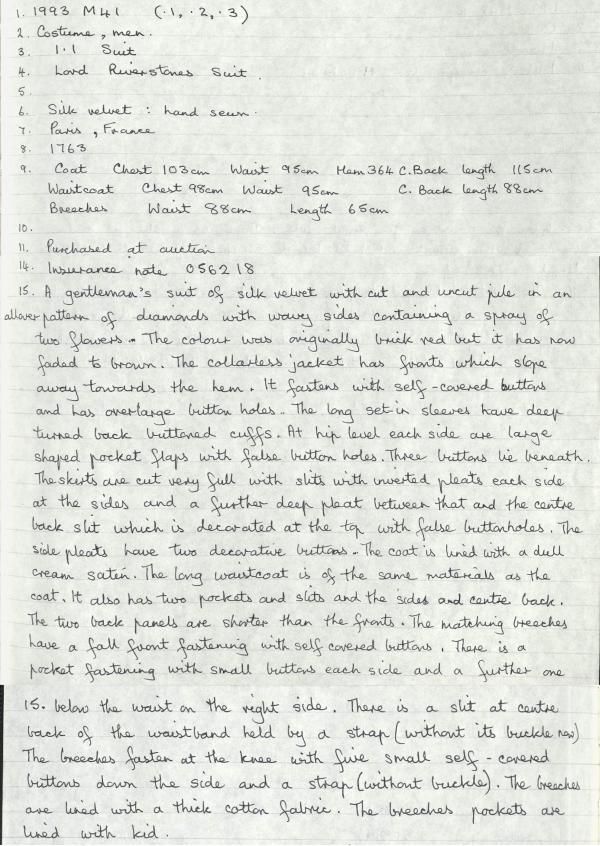 1. 1993 M41 (.1, .2, .3)
2. Costume, men.
3. 1.1 Suit
4. Lord Riverstones Suit.
5.
6. Silk velvet : hand sewn.
7. Paris, France
8. 1763
9. Coat Chest 103cm Waist 95cm Hem 364 C.Back length 115cm
Waistcoat Chest 98cm Waist 95cm C. Back length 88cm
Breeches Waist 88cm Length 65cm
10.
11. Purchased at auction
14. Insurance note 056218
15. A gentleman's suit of silk velvet with cut and uncut pile in an
allover pattern of diamonds with wavy sides containing a spray of
two flowers.. The colour was originally brick red but it has now
faded to brown. The collarless jacket has fronts which slope
away towards the hem. It fastens with self-covered buttons
and has overlarge button holes.. The long set-in sleeves have deep
turned back buttoned cuffs. At hip level each side are large
shaped pocket flaps with false button holes. Three buttons lie beneath.
The skirts are cut very full with slits with inverted pleats each side
at the sides and a further deep pleat between that and the centre
back slit which is decorated at the top with false buttonholes. The
side pleats have two decorative buttons.. The coat is lined with a dull
cream satin. The long waistcoat is of the same materials as the
coat. It also has two pockets and slits and the sides and centre back.
The two back panels are shorter than the fronts. The matching breeches
have a fall front fastening with self covered buttons. There is a
pocket fastening with small buttons each side and a further one
15. below the waist on the right side. There is a slit at centre
back of the waistband held by a strap (without its buckle now)
The breeches fasten at the knee with five small self-covered
buttons down the side and a strap (without buckle). The breeches
are lined with a thick cotton fabric. The breeches pockets are
lined with kid.